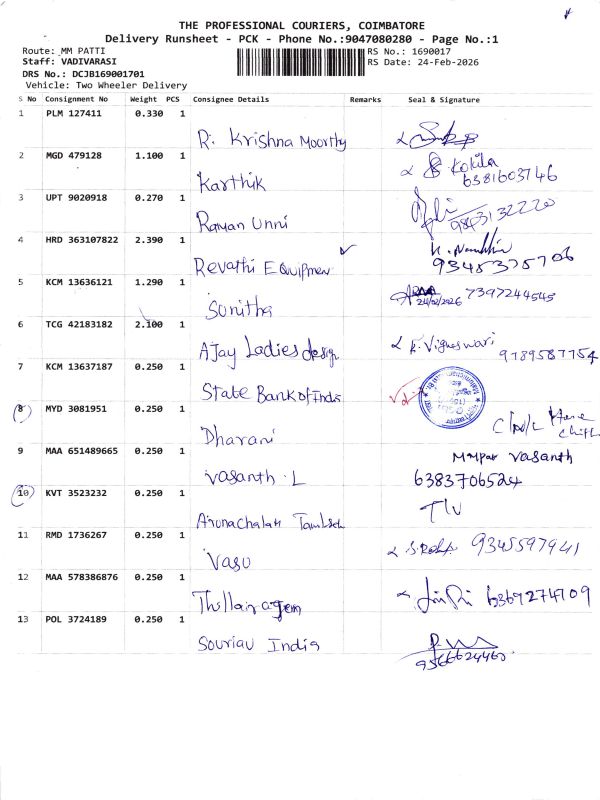 THE PROFESSIONAL COURIERS, COIMBATORE
Delivery Runsheet - PCK - Phone No.:9047080280 - Page No.:1
Route: MM PATTI
RS No.: 1690017
Staff: VADIVARASI
RS Date: 24-Feb-2026
DRS No.: DCJB169001701
Vehicle: Two Wheeler Delivery
S No Consignment No Weight PCS Consignee Details Remarks Seal & Signature
1 PLM 127411 0.330 1
R. Krishna Moorthy
2 MGD 479128 1.100 1
Karthik Kokila 6381603746
3 UPT 9020918 0.270 1
Raman Unni 9843132220
4 HRD 363107822 2.390 1
Revathi Equipmen 9345375706
5 KCM 13636121 1.290 1
Sunitha 24/02/2026 7397244545
6 TCG 42183182 2.100 1
Ajay Ladies design K. Vigneswari 9789587754
7 KCM 13637187 0.250 1
State Bank of Inds
8 MYD 3081951 0.250 1
Dharani
9 MAA 651489665 0.250 1
Vasanth. L Vasanth 6383706524
10 KVT 3523232 0.250 1
11 RMD 1736267 0.250 1
Vasu 9345597941
12 MAA 578386876 0.250 1
6369274109
13 POL 3724189 0.250 1
Souriau India 9566624460